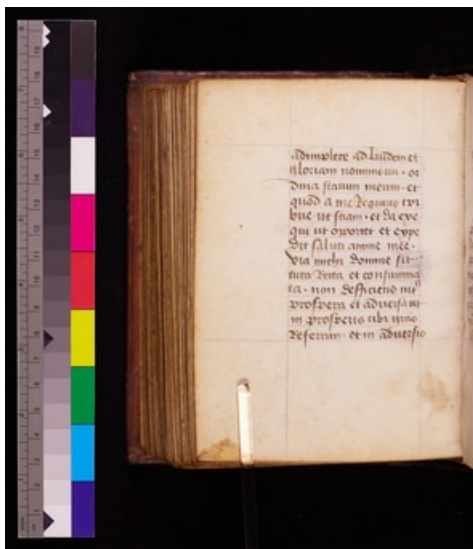 adimplere ad laudem et
gloriam nominis tui · or
dina statum meum · et
quod a me requiris tri
bue ut sciam · et da exe
qui ut oportet et expe
dit saluti anime mee ·
Via michi domine sit
tuta recta et consumma
ta · non defficiens
prospera et adversa ut
in prosperis tibi
referam · et in adversis